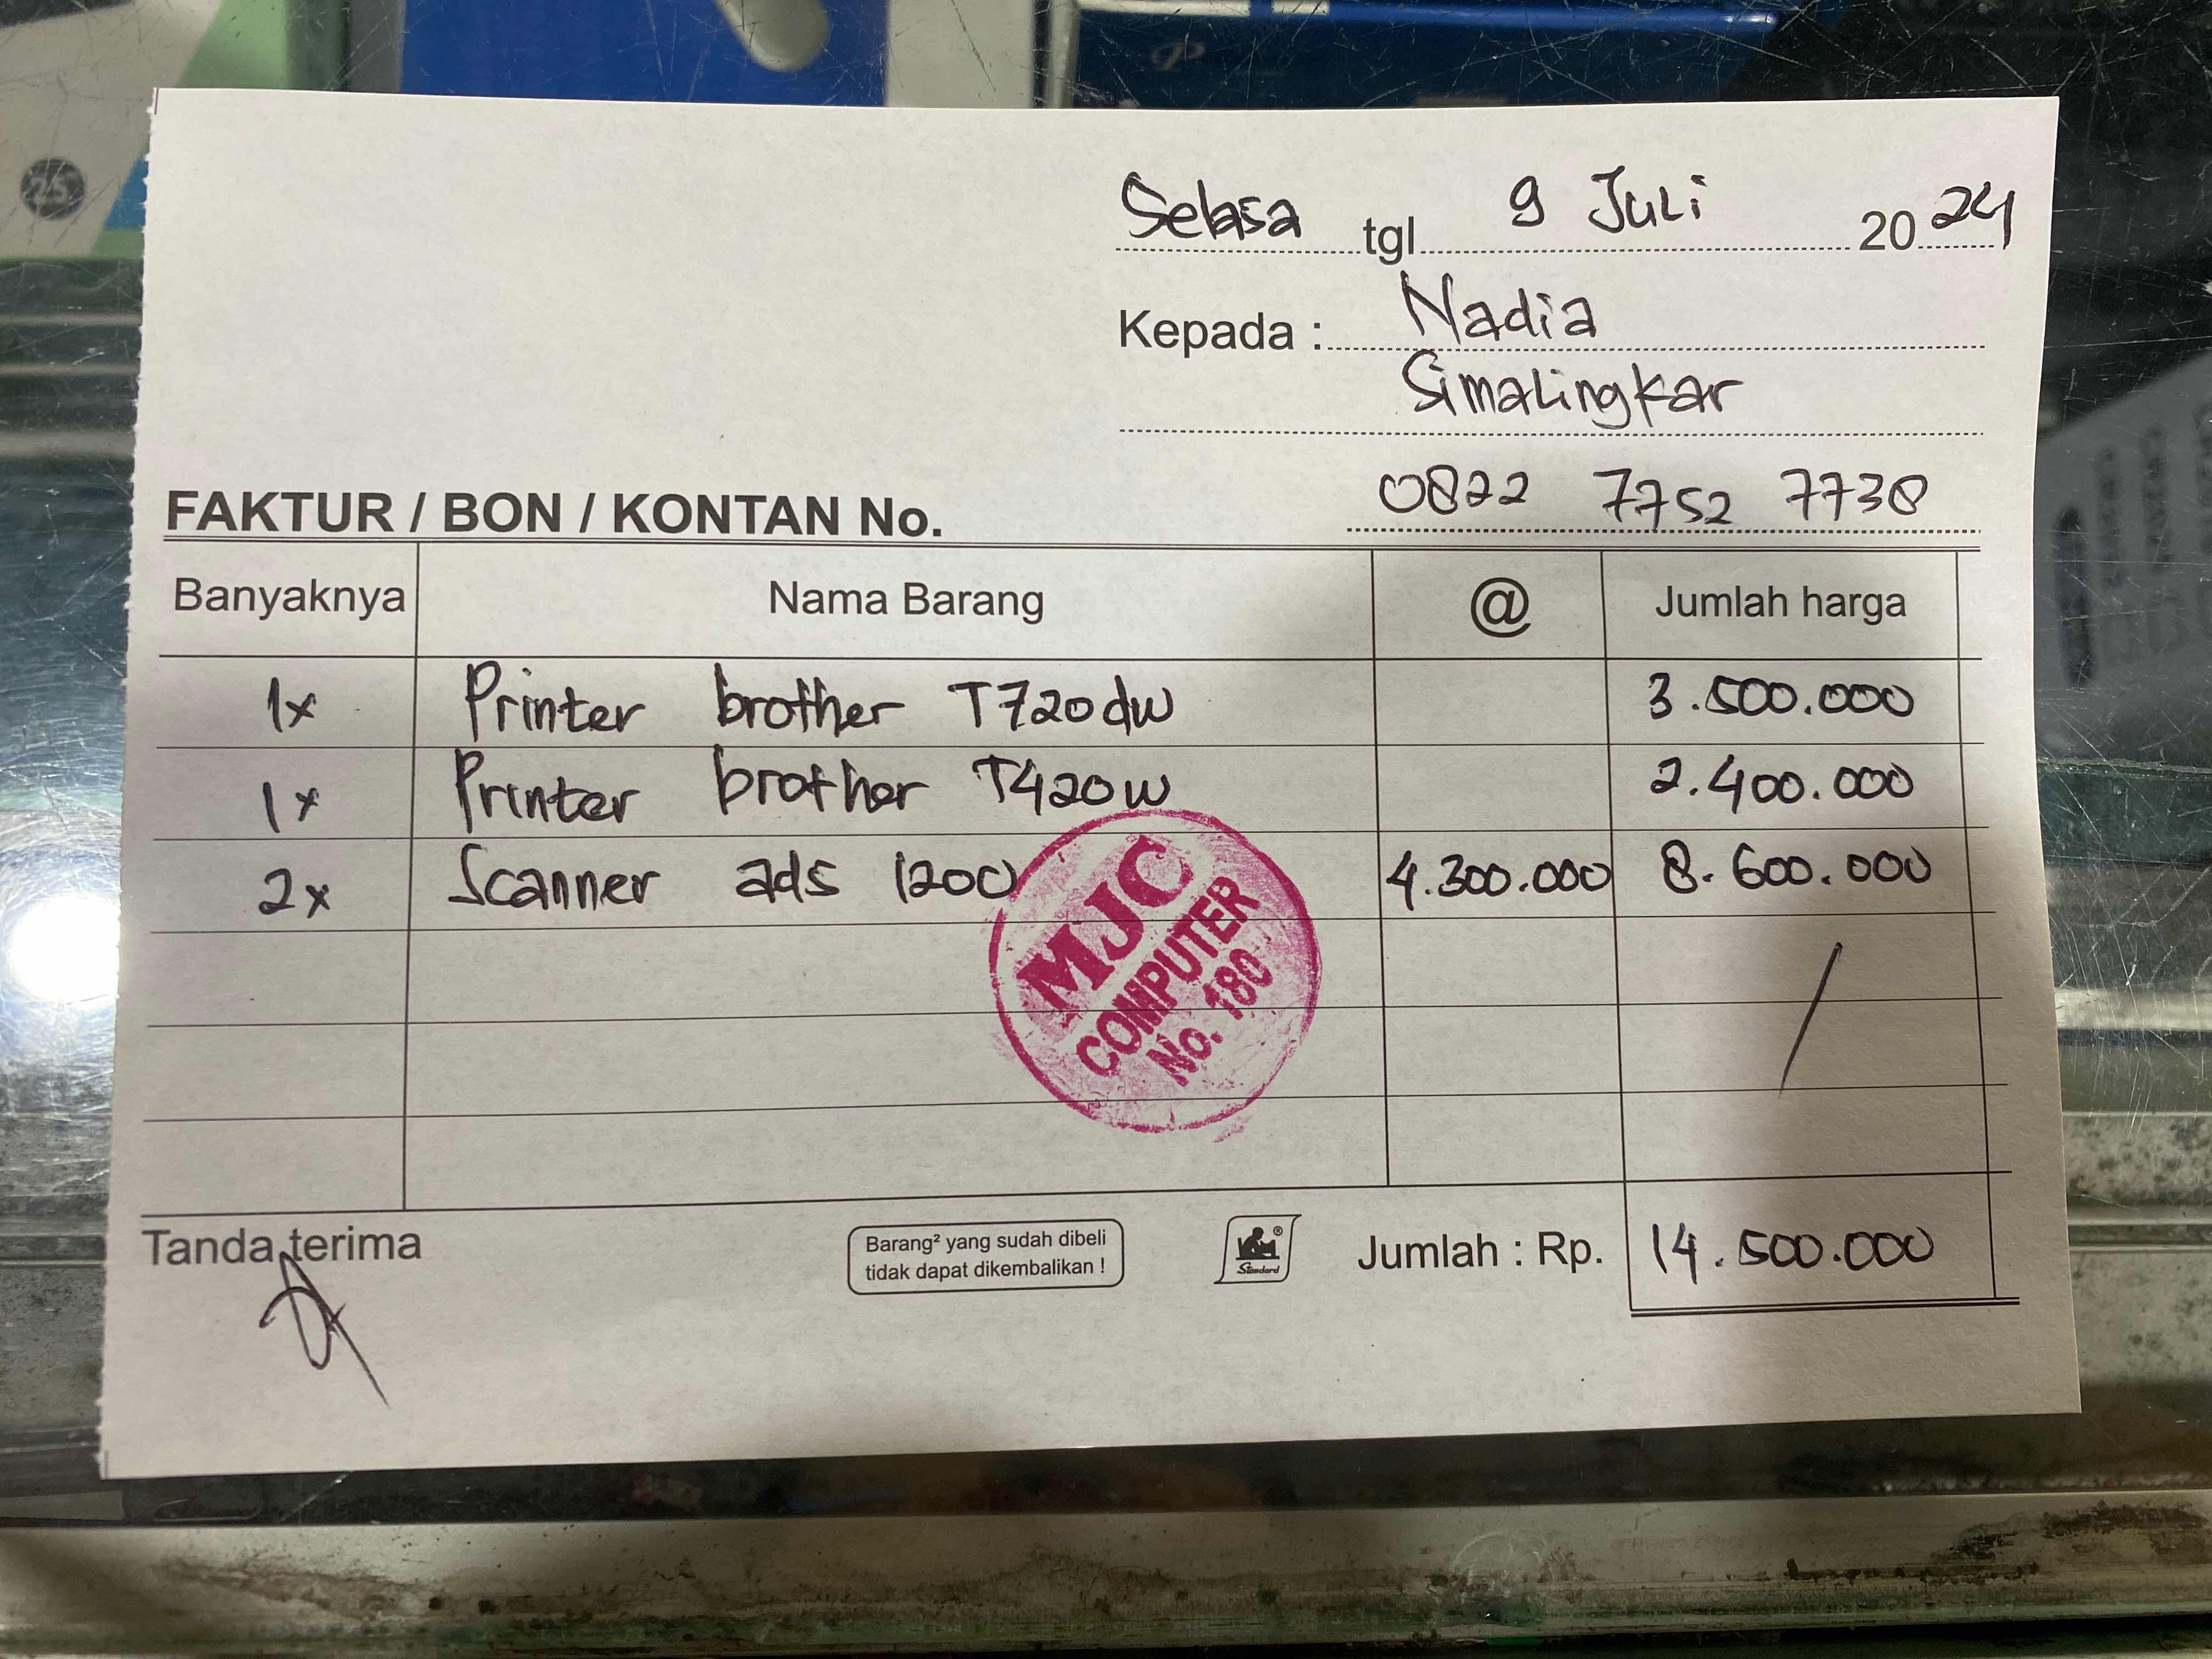 Selasa tgl 9 Juli 2024
Kepada : Nadia
Simalingkar
FAKTUR / BON / KONTAN No. 0822 7752 7738
Banyaknya Nama Barang @ Jumlah harga
1x Printer brother T720dw 3.500.000
1x Printer brother T420w 2.400.000
2x Scanner ads 1200 4.300.000 8.600.000
MJC
COMPUTER
No. 180
Tanda terima
Barang² yang sudah dibeli
tidak dapat dikembalikan !
Standard
Jumlah : Rp. 14.500.000